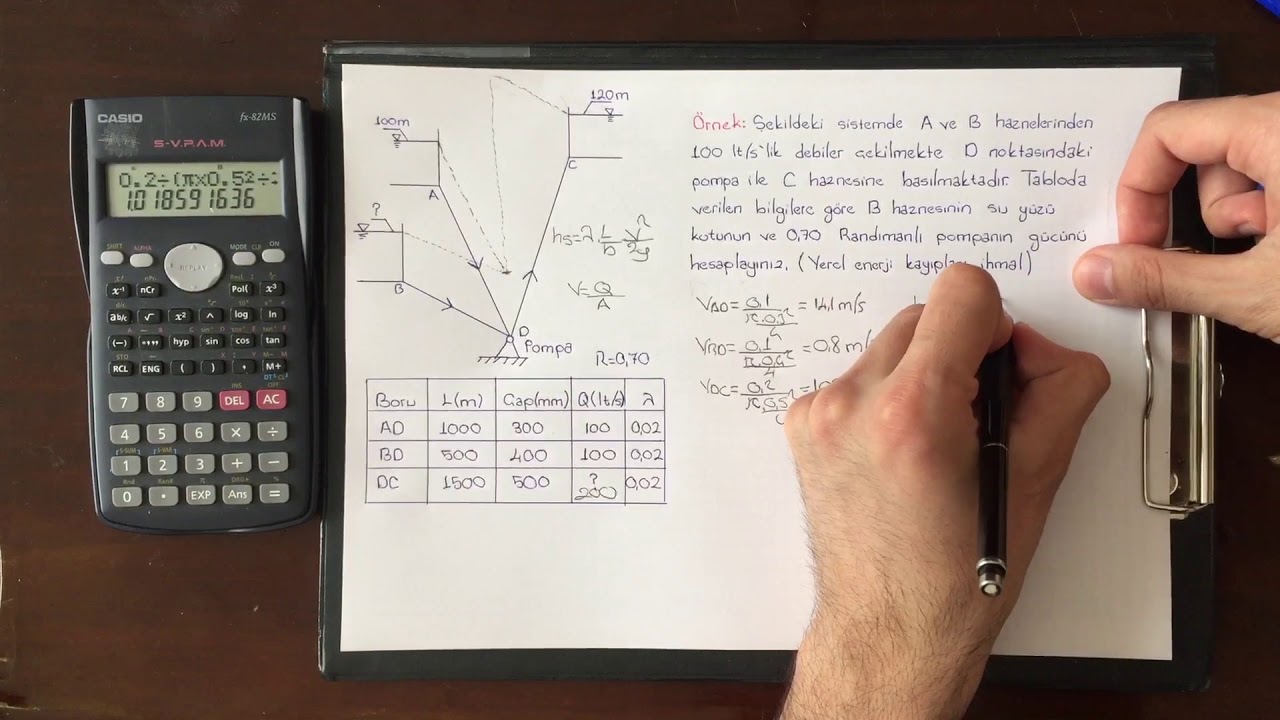 CASIO
fx-82MS
S-V.P.A.M.
0.2÷(π×0.5²÷
1.018591636
SHIFT
ALPHA
REPLAY
MODE CLR
ON
x⁻¹
nCr
Pol(
x³
ab/c
√
x²
^
log
ln
(−)
hyp
sin
cos
tan
RCL
ENG
(
)
,
M+
7
8
9
DEL
AC
4
5
6
×
÷
1
2
3
+
−
0
.
EXP
Ans
=
100m
120m
A
C
?
B
D
Pompa
hs=λ.L/D V²/2g
V=Q/A
R=0,70
Boru L(m) Çap(mm) Q(lt/s) λ
AD 1000 300 100 0,02
BD 500 400 100 0,02
DC 1500 500 ? 200 0,02
Örnek: Şekildeki sistemde A ve B haznelerinden
100 lt/s'lik debiler çekilmekte D noktasındaki
pompa ile C haznesine basılmaktadır. Tabloda
verilen bilgilere göre B haznesinin su yüzü
kotunun ve 0,70 Randımanlı pompanın gücünü
hesaplayınız. (Yerel enerji ihmal)
VAD=0,1/(π.0,3²/4)=1,41 m/s
VBD=0,1/(π.0,4²/4)=0,8 m/
VDC=0,2/(π.0,5²